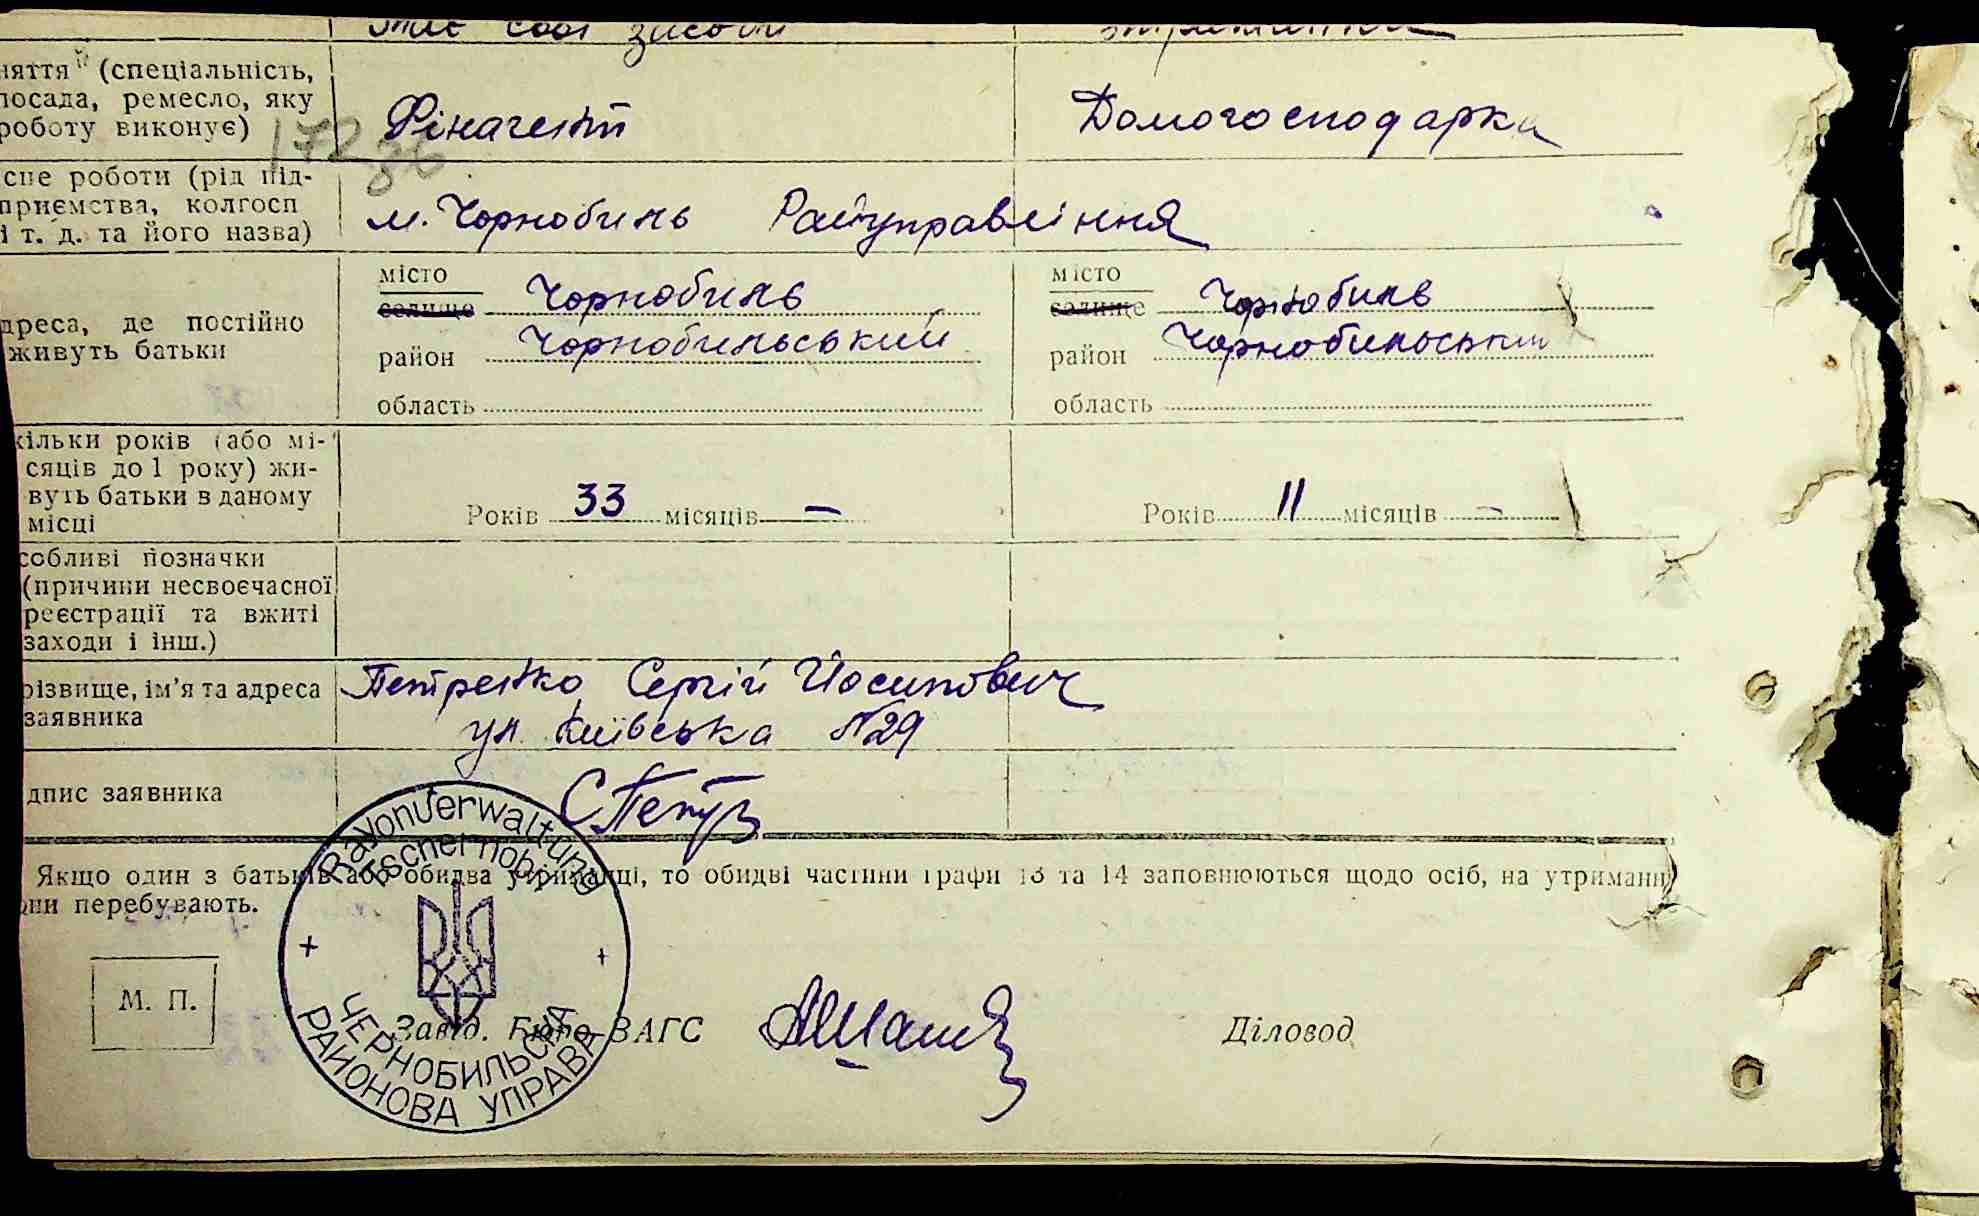 має собі засоби утриманка
няття (спеціальність,
посада, ремесло, яку
роботу виконує)
172
86
Фінагент Домогосподарка
сце роботи (рід під-
приємства, колгосп
і т. д. та його назва)
м. Чорнобиль Райуправління
дреса, де постійно
живуть батьки
місто Чорнобиль місто Чорнобиль
селище селище
район Чорнобильський район Чорнобильський
область область
кільки років (або мі-
сяців до 1 року) жи-
вуть батьки в даному
місці
Років 33 місяців — Років 11 місяців —
собливі позначки
(причини несвоєчасної
реєстрації та вжиті
заходи і інш.)
різвище, ім'я та адреса
заявника
Петренко Сергій Йосипович
ул. Київська №29
дпис заявника
С Петр
Якщо один з батьків або обидва утриманці, то обидві частини графи 13 та 14 заповнюються щодо осіб, на утриманні
они перебувають.
Rayonverwaltung
Tschernobyl
ЧЕРНОБИЛЬСКА
РАЙОНОВА УПРАВА
М. П.
Завід. Бюро ЗАГС Діловод